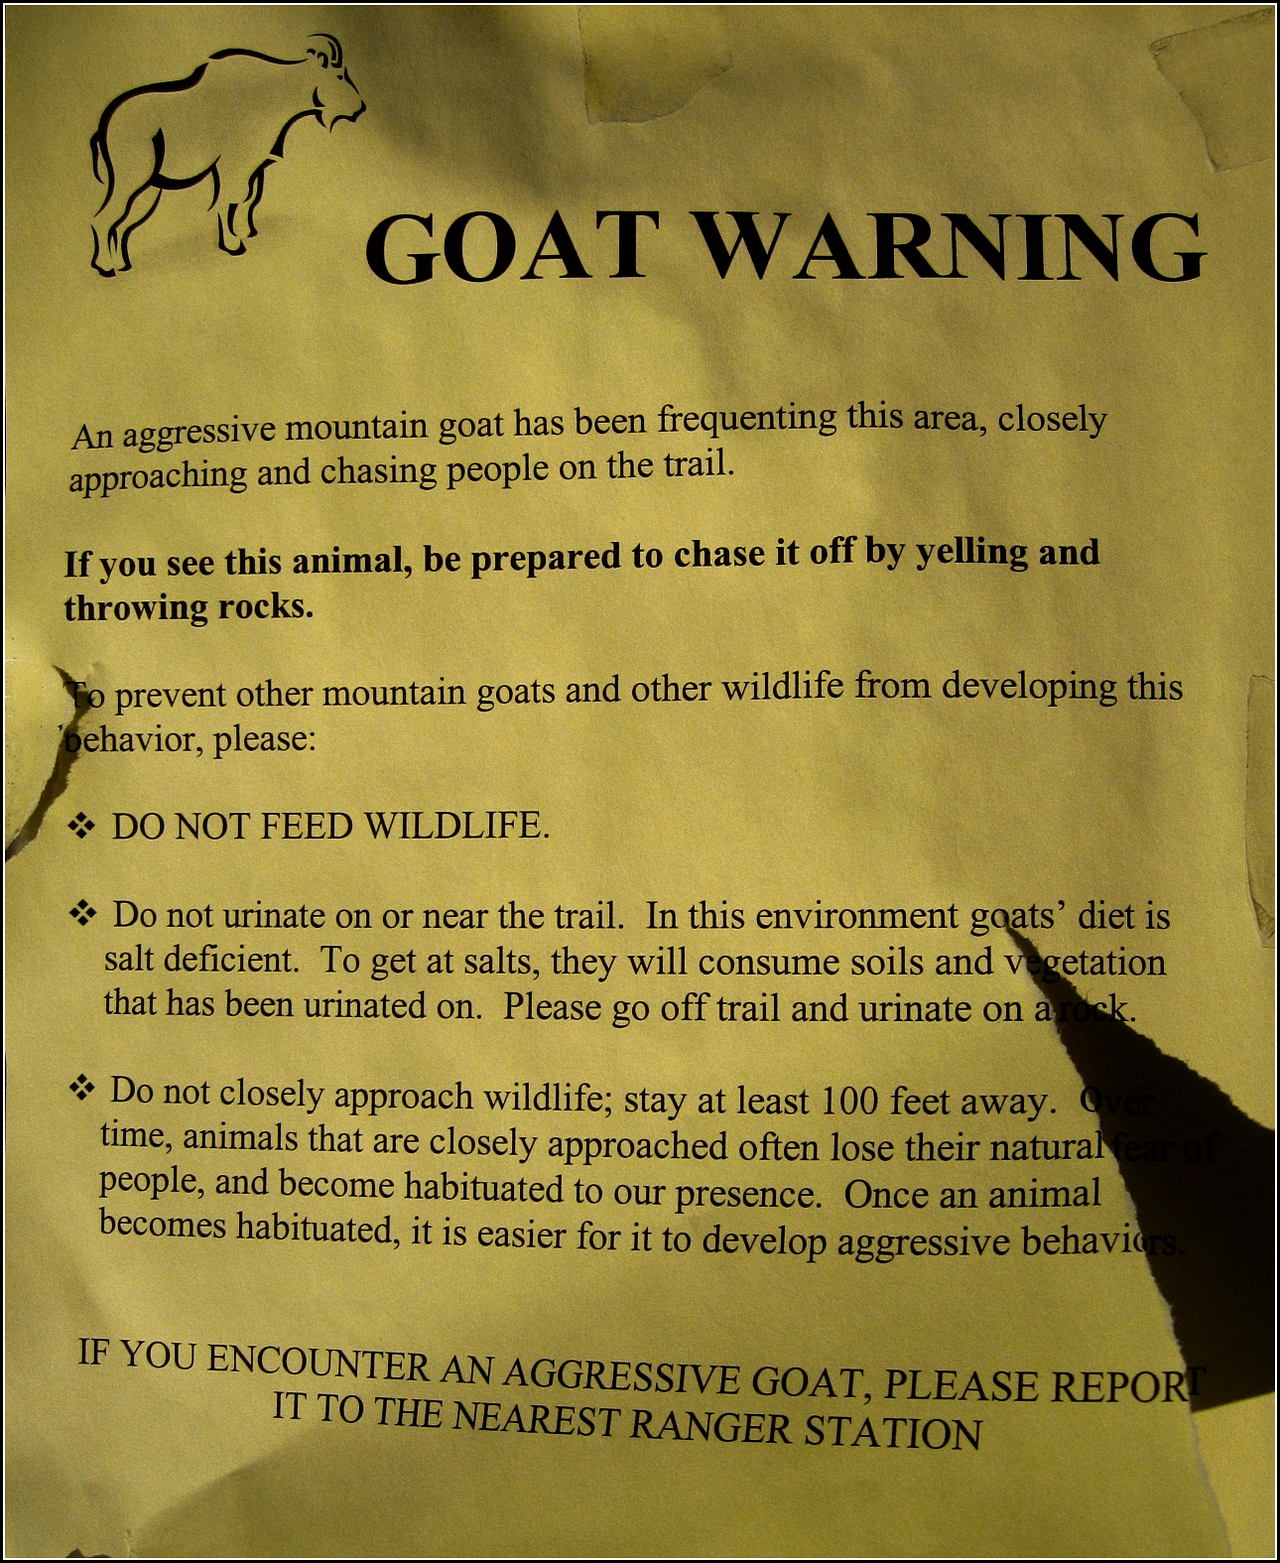 GOAT WARNING
An aggressive mountain goat has been frequenting this area, closely
approaching and chasing people on the trail.
If you see this animal, be prepared to chase it off by yelling and
throwing rocks.
To prevent other mountain goats and other wildlife from developing this
behavior, please:
❖ DO NOT FEED WILDLIFE.
❖ Do not urinate on or near the trail. In this environment goats’ diet is
salt deficient. To get at salts, they will consume soils and vegetation
that has been urinated on. Please go off trail and urinate on a rock.
❖ Do not closely approach wildlife; stay at least 100 feet away. Over
time, animals that are closely approached often lose their natural fear of
people, and become habituated to our presence. Once an animal
becomes habituated, it is easier for it to develop aggressive behaviors.
IF YOU ENCOUNTER AN AGGRESSIVE GOAT, PLEASE REPORT
IT TO THE NEAREST RANGER STATION